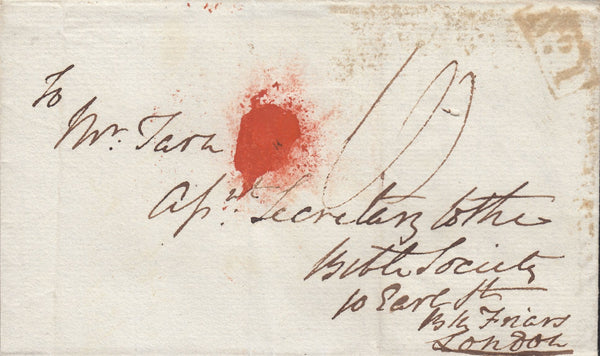 To
Mr. Tarn
Asst. Secretary to the
Bible Society
10 Earl St
Blk Friars
London